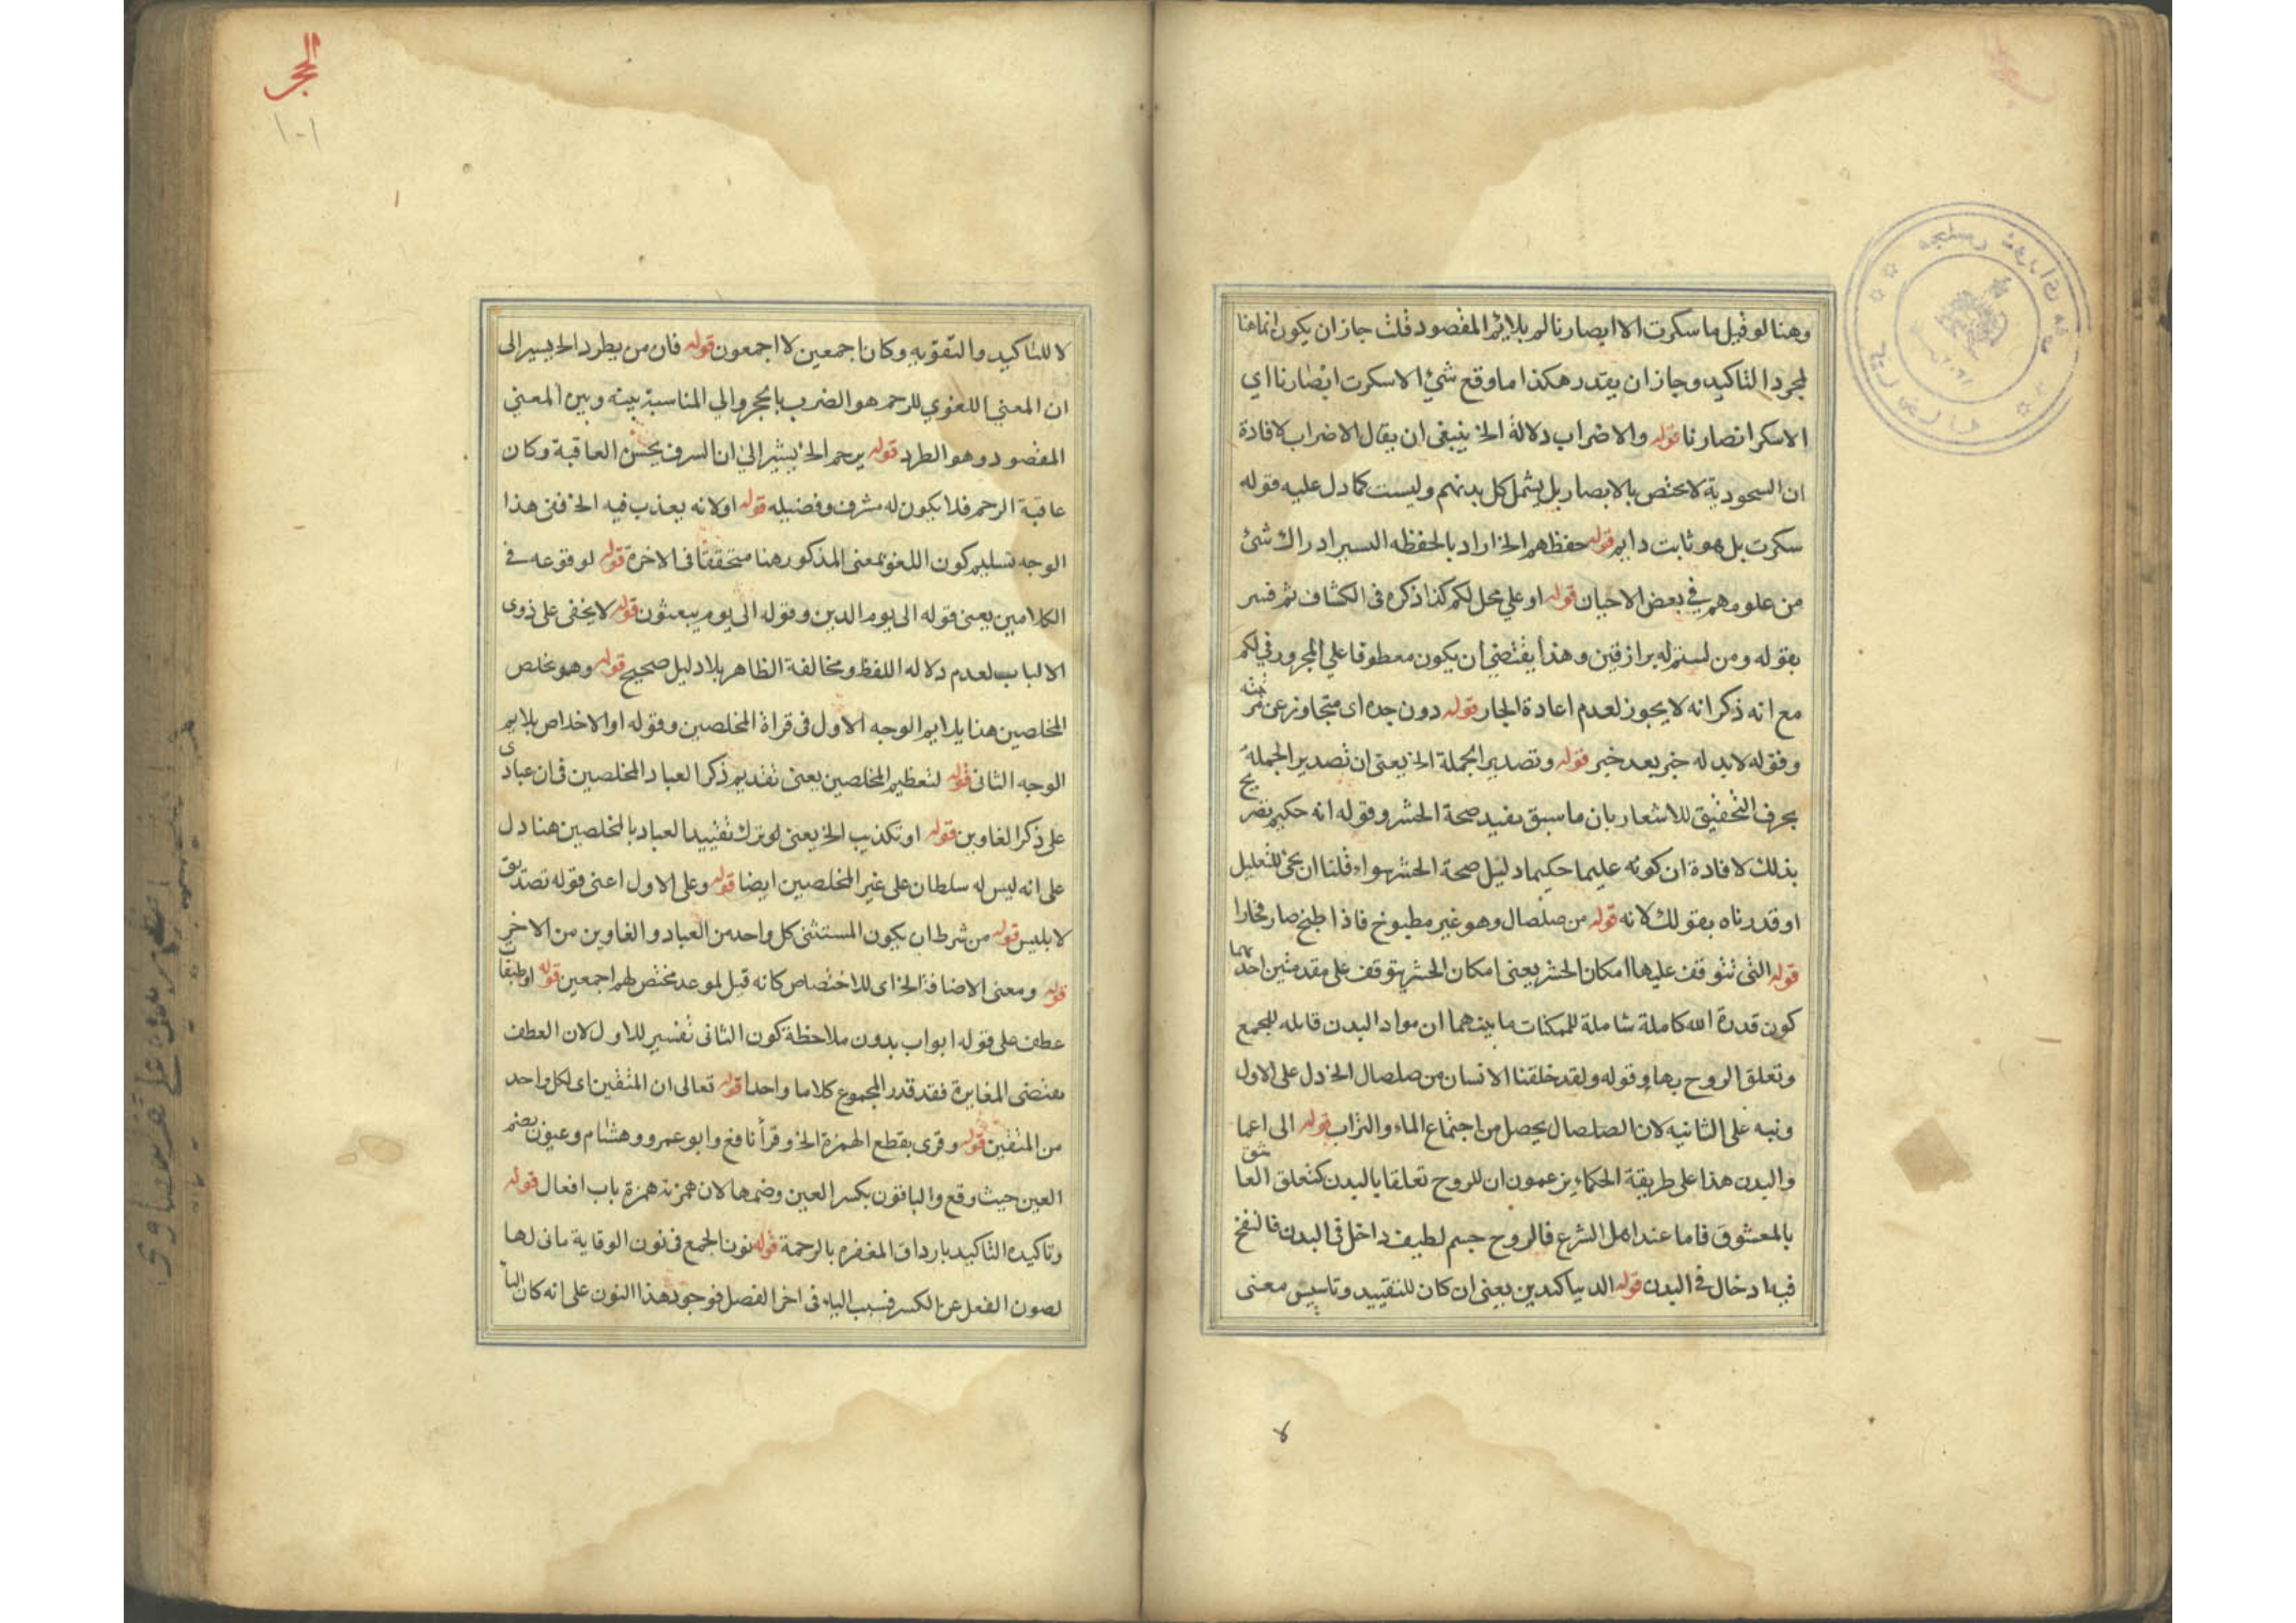 وهنا لو قيل ما سكرت الا ابصارنا لم يلائم المقصود قلت جاز ان يكون انما هنا
لمجرد التاكيد وجاز ان يقدر هكذا ما وقع شئ الا سكرت ابصارنا اي
الا سكر ابصارنا قوله والاضراب دلالة الخ ينبغى ان يقال الاضراب لافادة
ان السحودية لا يختص بالابصار بل يشمل كل بدنهم وليست كما دل عليه قوله
سكرت بل هو ثابت دايم قوله حفظهم الخ اراد بالحفظه السير ادراك شئ
من علومهم في بعض الاحيان قوله او علي محل لكم كذا ذكره فى الكشاف ثم فسر
بقوله ومن لستم له برازقين وهذا يقتضي ان يكون معطوفا علي المجرور في لكم
مع انه ذكر انه لا يجوز لعدم اعادة الجار قوله دون حده اى متجاوز عن
وقوله لا بد له خبر بعد خبر قوله وتصدير الجملة الخ يعنى ان تصدير الجملة
بحرف التحقيق للاشعار بان ما سبق يفيد صحة الحشر وقوله انه حكيم تصريح
بذلك لافادة ان كونه عليما حكيما دليل صحة الحشر سواء قلنا ان يجئ للتعليل
او قدرناه بقولك لانه قوله من صلصال وهو غير مطبوخ فاذا طبخ صار فخارا
قوله التى تتوقف عليها امكان الحشر يعنى امكان الحشر يتوقف على مقدمتين احديهما
كون قدرة الله كاملة شاملة للممكنات ما بينهما ان مواد البدن قابله للجمع
وتعلق الروح بها وقوله ولقد خلقنا الانسان من صلصال الخ دل على الاول
ونبه على الثانيه لان الصلصال يحصل من اجتماع الماء والتراب قوله الى اعما
والبدن هذا على طريقة الحكماء يزعمون ان للروح تعلقا بالبدن كتعلق العاشق
بالمعشوق فاما عند اهل الشرع فالروح جسم لطيف داخل فى البدن فالنفخ
فيه ادخال فى البدن قوله الد بياكيدين يعنى ان كان للتقييد وتاسيس معنى
لا
الحجر
١٠١
لا للتاكيد والتقويه وكان اجمعين لا اجمعون قوله فان من يطرد الخ يسير الى
ان المعني اللغوي للرجم هو الضرب بالحجر والي المناسبة بينه وبين المعني
المقصود وهو الطرد قوله يرجم الخ يشير الى ان الشرف بحسن العاقبة وكان
عاقبة الرجم فلا يكون له شرف وفضيله قوله او لانه يعذب فيه الخ ففى هذا
الوجه تسليم كون اللعن بمعنى المذكور هنا متحققا فى الاخرة قوله لوقوعه فى
الكلامين يعنى قوله الى يوم الدين وقوله الى يوم يبعثون قوله لا يخفى على ذوى
الالباب لعدم دلاله اللفظ ومخالفة الظاهر بلا دليل صحيح قوله وهو تخلص
المخلصين هنا يلايم الوجه الاول فى قراة المخلصين وقوله او الاخلاص يلايم
الوجه الثانى قوله لتعظيم المخلصين يعنى تقديم ذكر العباد المخلصين فى ان عبادى
على ذكر الغاوين قوله او تكذيب الخ يعنى لو ترك تقييد العباد بالمخلصين هنا دل
على انه ليس له سلطان على غير المخلصين ايضا قوله وعلى الاول اعنى قوله تصديق
لابليس قوله من شرط ان يكون المستثنى كل واحد من العباد والغاوين من الاخر
قوله ومعنى الاضافة الخ اى للاختصاص كانه قيل لموعد مختص لهم اجمعين قوله او طبقات
عطف على قوله ابواب بدون ملاحظة كون الثانى تفسير للاول لان العطف
يقتضى المغايرة فقد قدر المجموع كلاما واحدا قوله تعالى ان المتقين اى لكل واحد
من المتقين قوله وقرى بقطع الهمزة الخ وقرأ نافع وابو عمرو وهشام وعيون بضم
العين حيث وقع والباقون بكسر العين وضمها لان همزته همزة باب افعال قوله
وتاكيده التاكيد بارداف المغفره بالرحمة قوله نون الجمع فى نون الوقاية مانى لها
لصون الفعل عن الكسر فسبب الياء فى اخر الفصل فوجود هذا النون على انه كان اليا